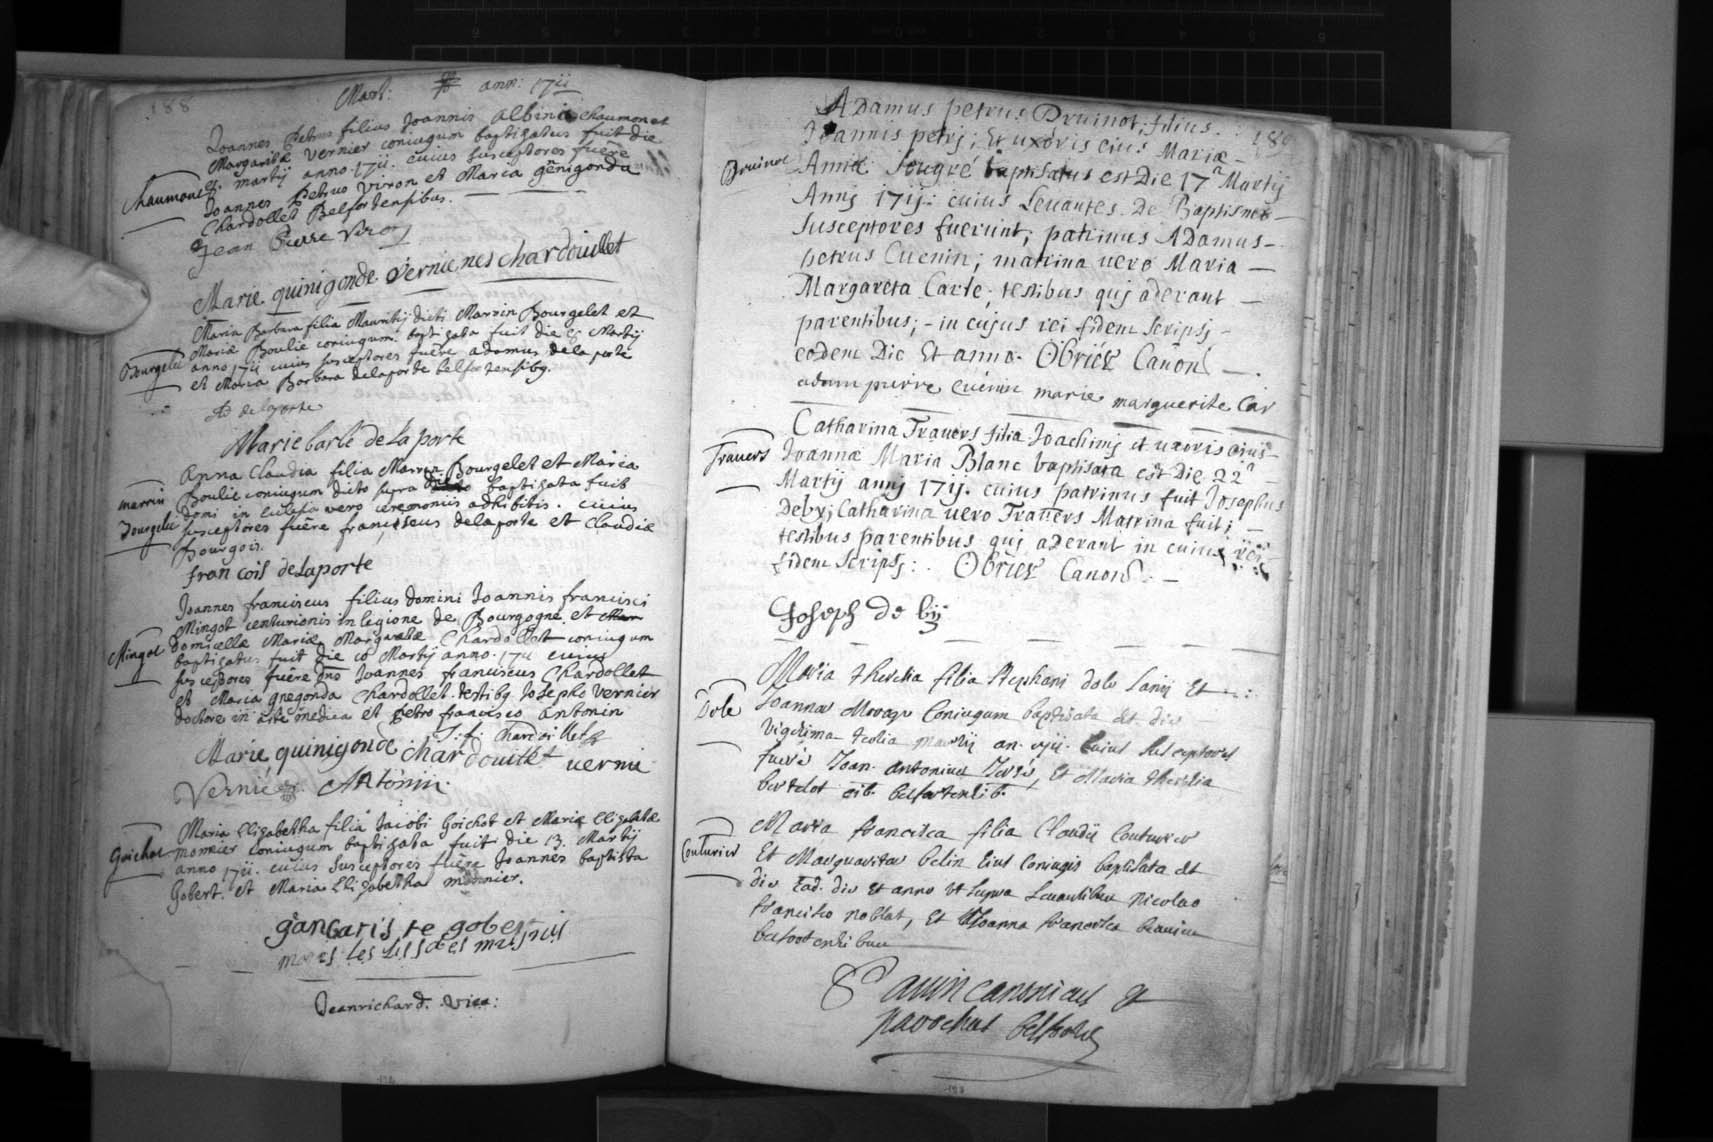 188
Mart: ann: 1711
Joannes Petrus filius Joannis Albini Chaumonet
Margaritæ Vernier coniugum baptizatus fuit die
martij anno 1711. cuius susceptores fuêre
Chaumonet
Joannes Petrus Viron et Maria génigonda
Chardollet Belfortensibus.
Jean Pierre Viron
Marie quinigonde Vernie nes chardouillet
Maria Barbara filia Mauritij dicti Marrin Bourgelet et
Mariæ Boulie coniugum baptizata fuit die 9 Martij
Bourgelet
anno 1711 cuius susceptores fuêre adamus de la porte
et Maria Barbara delaporte belfortensibq.
AD delaporte
Marie barbe de La porte
Anna Claudia filia Marrin Bourgelet et Maria
marrin
Bourgelet
Boulie coniugum dicto supra baptizata fuit
domi in eclesia vero ceremoniis adhibitis. cuius
susceptores fuêre franciscus delaporte et Claudia
Bourgois.
francois deLaporte
Joannes franciscus filius domini Joannis francisci
Mingot centurionis in legione de Bourgogne et
Mingot
domicellæ Mariæ Margaretæ Chardollet coniugum
baptizatus fuit die 10 Martij anno 1711 cuius
susceptores fuêre dns Joannes franciscus Chardollet
et Maria gnegonda Chardollet. testibq. Josepho Vernier
doctore in arte medica et petro francisco antonin
J. f. Chardoillet
Marie, quinigonde chardouillet vernie
Vernie Antonin
Maria Elizabetha filia Jacobi Goichot et Mariæ Elizabetæ
Goichot
monnier coniugum baptizata fuit die 13. Martij
anno 1711. cuius susceptores fuêre Joannes baptista
Gobert. et Maria Elizabetha monnier.
gan baris te gober
Jeanrichard. Vica:
189
Adamus petrus Druinot; filius
Joannis petri; Et uxoris eius Mariæ
Druinot
Annæ Sougré baptisatus est Die 17ª Martij
Annj 1711: cuius Levantes De Baptismo
susceptores fuerunt; patrinus Adamus
petrus Cuenin; matrina vero Maria
Margareta Carle; testibus quj aderant
parentibus; in cujus rei fidem scripsj
eodem Die Et anno. Obriex Canon
adam pierre cuénin marie marguerite Car
Catharina Travers filia Joachimj et uxoris ejus
Travers
Joannæ Maria Blanc baptisata est Die 22ª
Martij annj 1711. cuius patrinus fuit Josephus
Deby; Catharina vero Travers Matrina fuit;
testibus parentibus quj aderant in cuius rei
fidem scripsj: Obriex Canon
Joseph de bij
Maria theresia filia Stephani dole Lanij Et
Dole
Joannæ Coniugum baptisata Est die
Vigesima tertia martij an. 1711. Cuius susceptores
fuere Joan. antonius, Et Maria theresia
bertelot oib. belfortensib.
Maria francisca filia Claudii Couturier
Couturier
Et Margaritæ belin Eius Coniugis baptisata est
die Ead. die Et anno Vt supra Levantibus Nicolao
francisco noblat, Et Joanna francisca
belfortensibus
canonicus et
parochus belforti